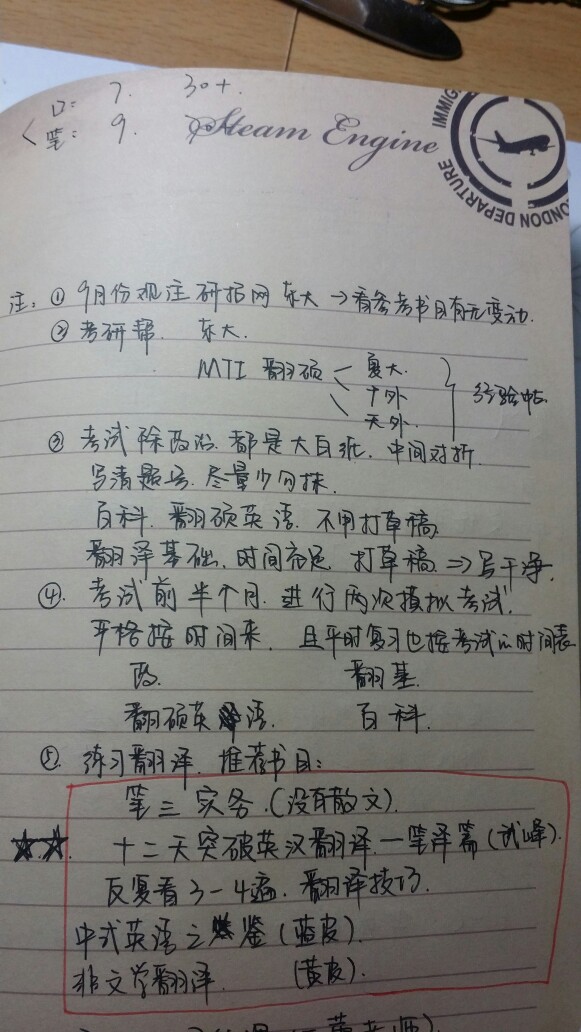 口: 7. 30+.
< 笔: 9.
Steam Engine
IMMIG
LONDON DEPARTURE
注: ① 9月份观注研招网 东大 → 看参考书目有无变动.
② 考研帮. 东大.
MTI 翻硕 复大.
外
天外.
经验帖.
③ 考试除政治. 都是大白纸. 中间对折.
写清题号. 尽量少勾抹.
百科. 翻硕英语. 不用打草稿.
翻译基础. 时间充足 打草稿. ⇒ 写干净.
④. 考试前半个月. 进行两次模拟考试.
严格按时间来. 且平时复习也按考试的时间表
政. 翻基.
翻硕英语. 百科.
⑤. 练习翻译. 推荐书目:
笔三实务.(没有散文).
十二天突破英汉翻译—笔译篇(武峰).
反复看3-4遍. 翻译技巧.
中式英语之鉴(蓝皮).
非文学翻译. (黄皮).